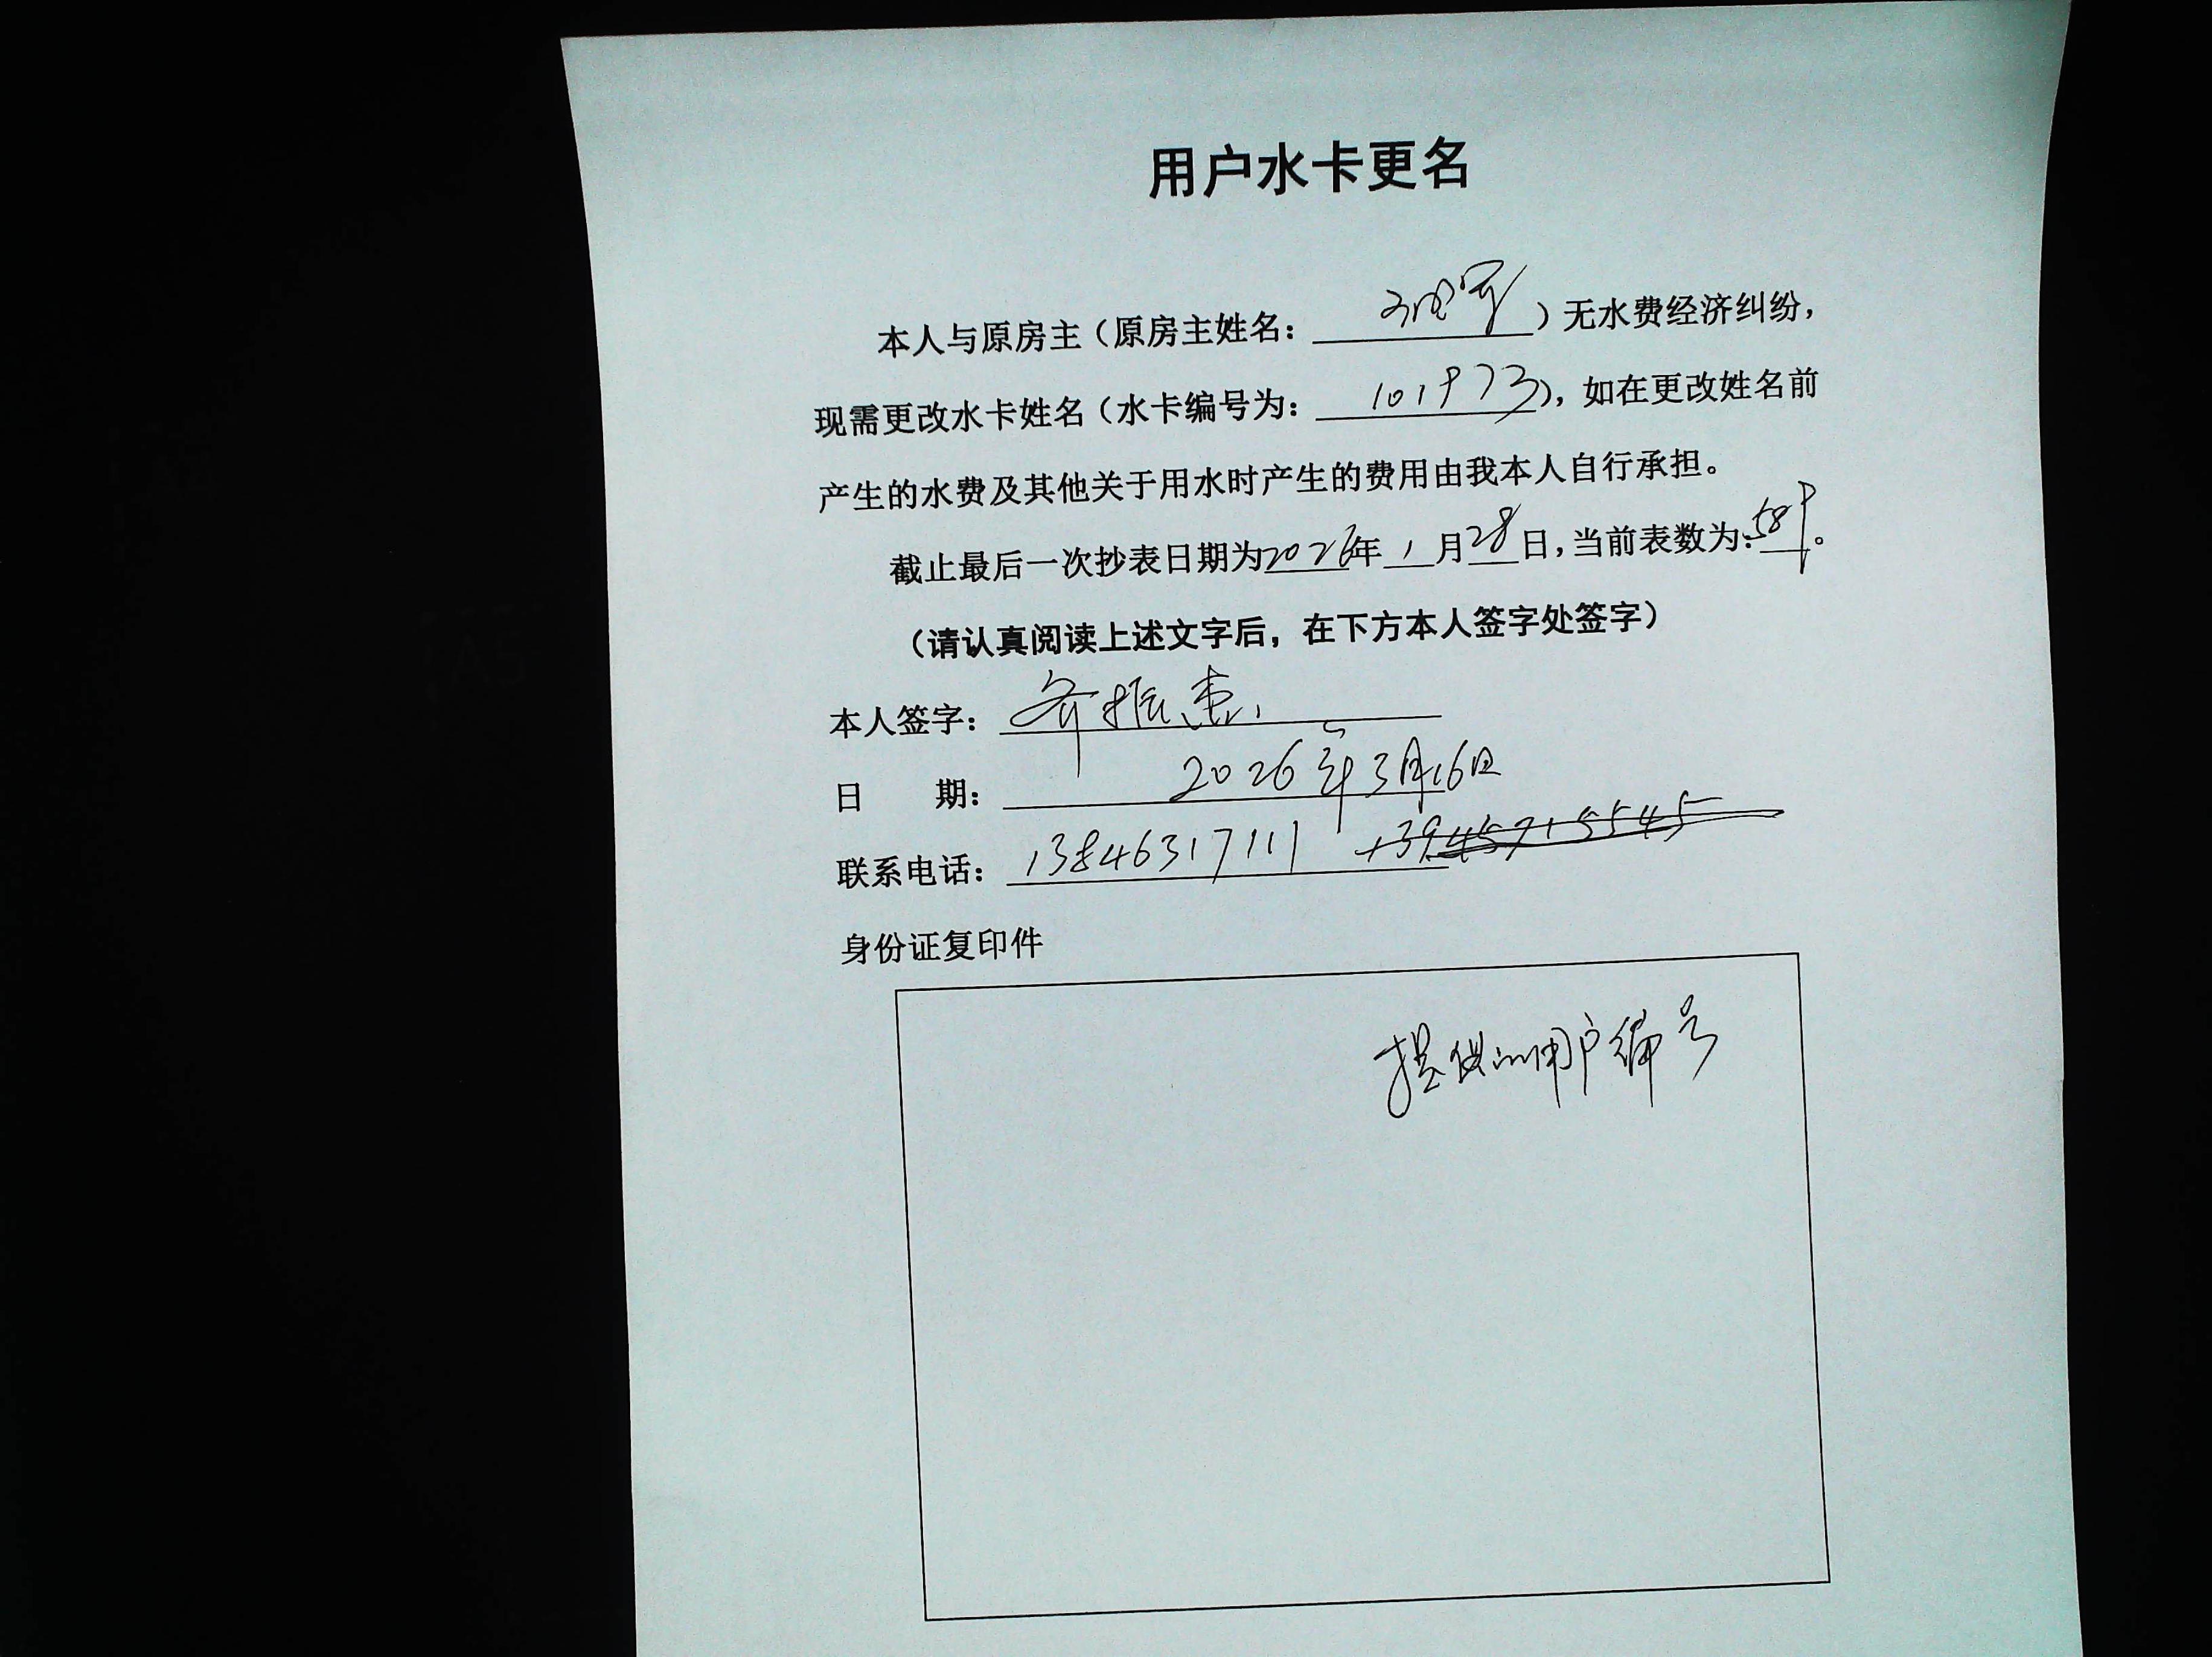 用户水卡更名
本人与原房主（原房主姓名：）无水费经济纠纷，
现需更改水卡姓名（水卡编号为：101973），如在更改姓名前
产生的水费及其他关于用水时产生的费用由我本人自行承担。
截止最后一次抄表日期为2026年1月28日，当前表数为：589。
（请认真阅读上述文字后，在下方本人签字处签字）
本人签字：齐振惠
日 期：2026年3月16日
联系电话：13846317111
身份证复印件
提供的用户编号